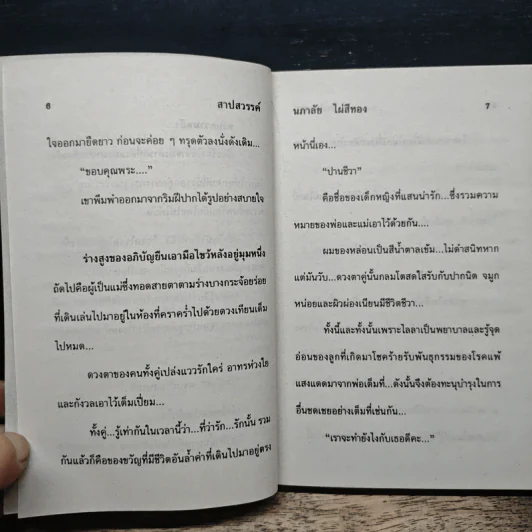 6
สาปสวรรค์
ใจออกมายืดยาว ก่อนจะค่อย ๆ ทรุดตัวลงนั่งดังเดิม...
“ขอบคุณพระ....”
เขาพึมพำออกมาจากริมฝีปากได้รูปอย่างสบายใจ
ร่างสูงของอภิบัญยืนเอามือไขว้หลังอยู่มุมหนึ่ง
ถัดไปคือผู้เป็นแม่ซึ่งทอดสายตาตามร่างบางกระจ้อยร่อย
ที่เดินเล่นไปมาอยู่ในห้องที่คราคร่ำไปด้วยดวงเทียนเต็ม
ไปหมด...
ดวงตาของคนทั้งคู่เปล่งแววรักใคร่ อาทรห่วงใย
และกังวลเอาไว้เต็มเปี่ยม...
ทั้งคู่...รู้เท่ากันในเวลานี้ว่า...ที่ว่ารัก...รักนั้น รวม
กันแล้วก็คือของขวัญที่มีชีวิตอันล้ำค่าที่เดินไปมาอยู่ตรง
นภาลัย ไผ่สีทอง
7
หน้านี่เอง...
“ปานชีวา”
คือชื่อของเด็กหญิงที่แสนน่ารัก...ซึ่งรวมความ
หมายของพ่อและแม่เอาไว้ด้วยกัน....
ผมของหล่อนเป็นสีน้ำตาลเข้ม...ไม่ดำสนิทหาก
แต่มันวับ...ดวงตาคู่นั้นกลมโตสดใสรับกับปากนิด จมูก
หน่อยและผิวผ่องเนียนมีชีวิตชีวา...
ทั้งนี้และทั้งนั้นเพราะไลลาเป็นพยาบาลและรู้จุด
อ่อนของลูกที่เกิดมาโชคร้ายรับพันธุกรรมของโรคแพ้
แสงแดดมาจากพ่อเต็มที่...ดังนั้นจึงต้องทะนุบำรุงในการ
อื่นชดเชยอย่างเต็มที่เช่นกัน...
“เราจะทำยังไงกับเธอดีคะ...”